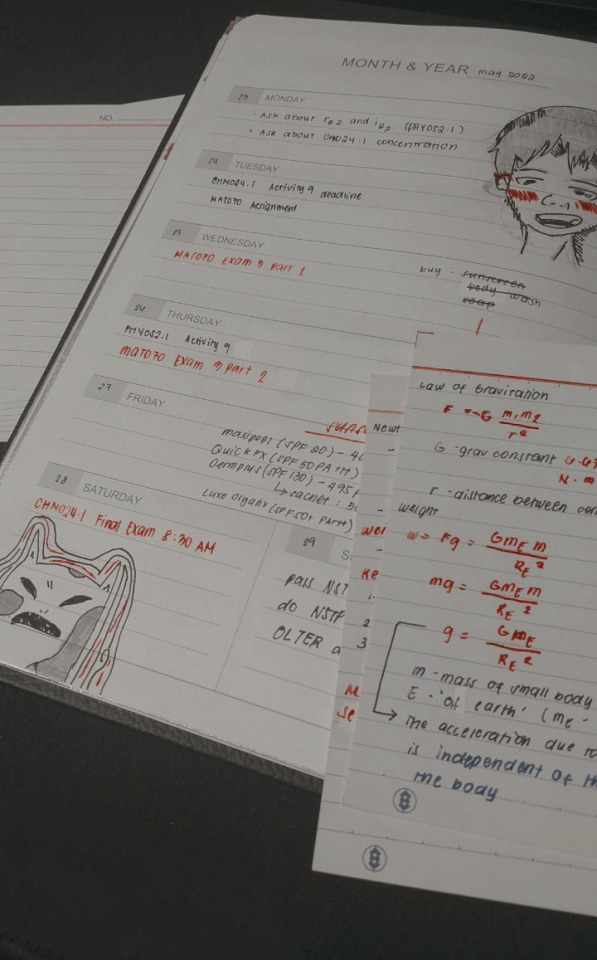 NO.
MONTH & YEAR may 2022
23 MONDAY
- ASK about re2 and ie2 (PHY052.1)
• ASK about CHM024.1 concentration
24 TUESDAY
CHM024.1 Activity 9 deadline
MAT070 Assignment
25 WEDNESDAY
MAT070 Exam 3 part 1
buy : sunscreen
body wash
soap
26 THURSDAY
PHY052.1 Activity 9
MAT070 Exam 3 part 2
27 FRIDAY
(SPF 80) -
QuickFX (SPF 50 PA++)
Dermplus (SPF 130) - 495
↳ sachet :
Luxe Organix (SPF50+ PA++)
28 SATURDAY
CHM024.1 Final Exam 8:30 AM
29
pass NST
do NSTP
OLTER a
Newt
-
-
wei
-
Ke
1.
2
3
Law of Gravitation
F = -G m1m2/r²
G - grav constant
N · m
r - distance between
- weight
w = Fg = GmE m/RE²
mg = GmE m/RE²
g = GmE/RE²
m - mass of small body
E - 'of earth' (mE -
→ The acceleration due to
is independent of th
the body